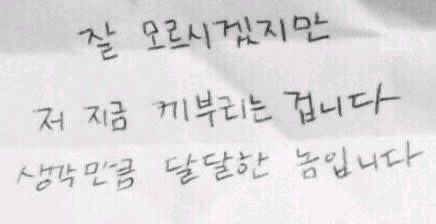 잘 모르시겠지만
저 지금 끼부리는 겁니다
생각만큼 달달한 놈입니다